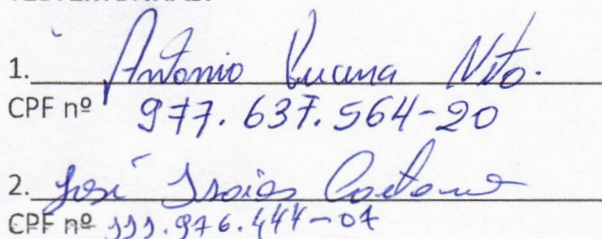 1. Antonio Lucena Neto.
CPF nº 977.637.564-20
2. José Isaias Caetano
CPF nº 111.976.444-07